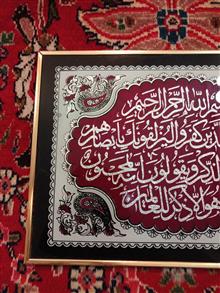 الله الرحمن الرحيم
كفروا ليزلقونك بأبصارهم
الذكر ويقولون إنه لمجنون
إلا ذكر للعالمين